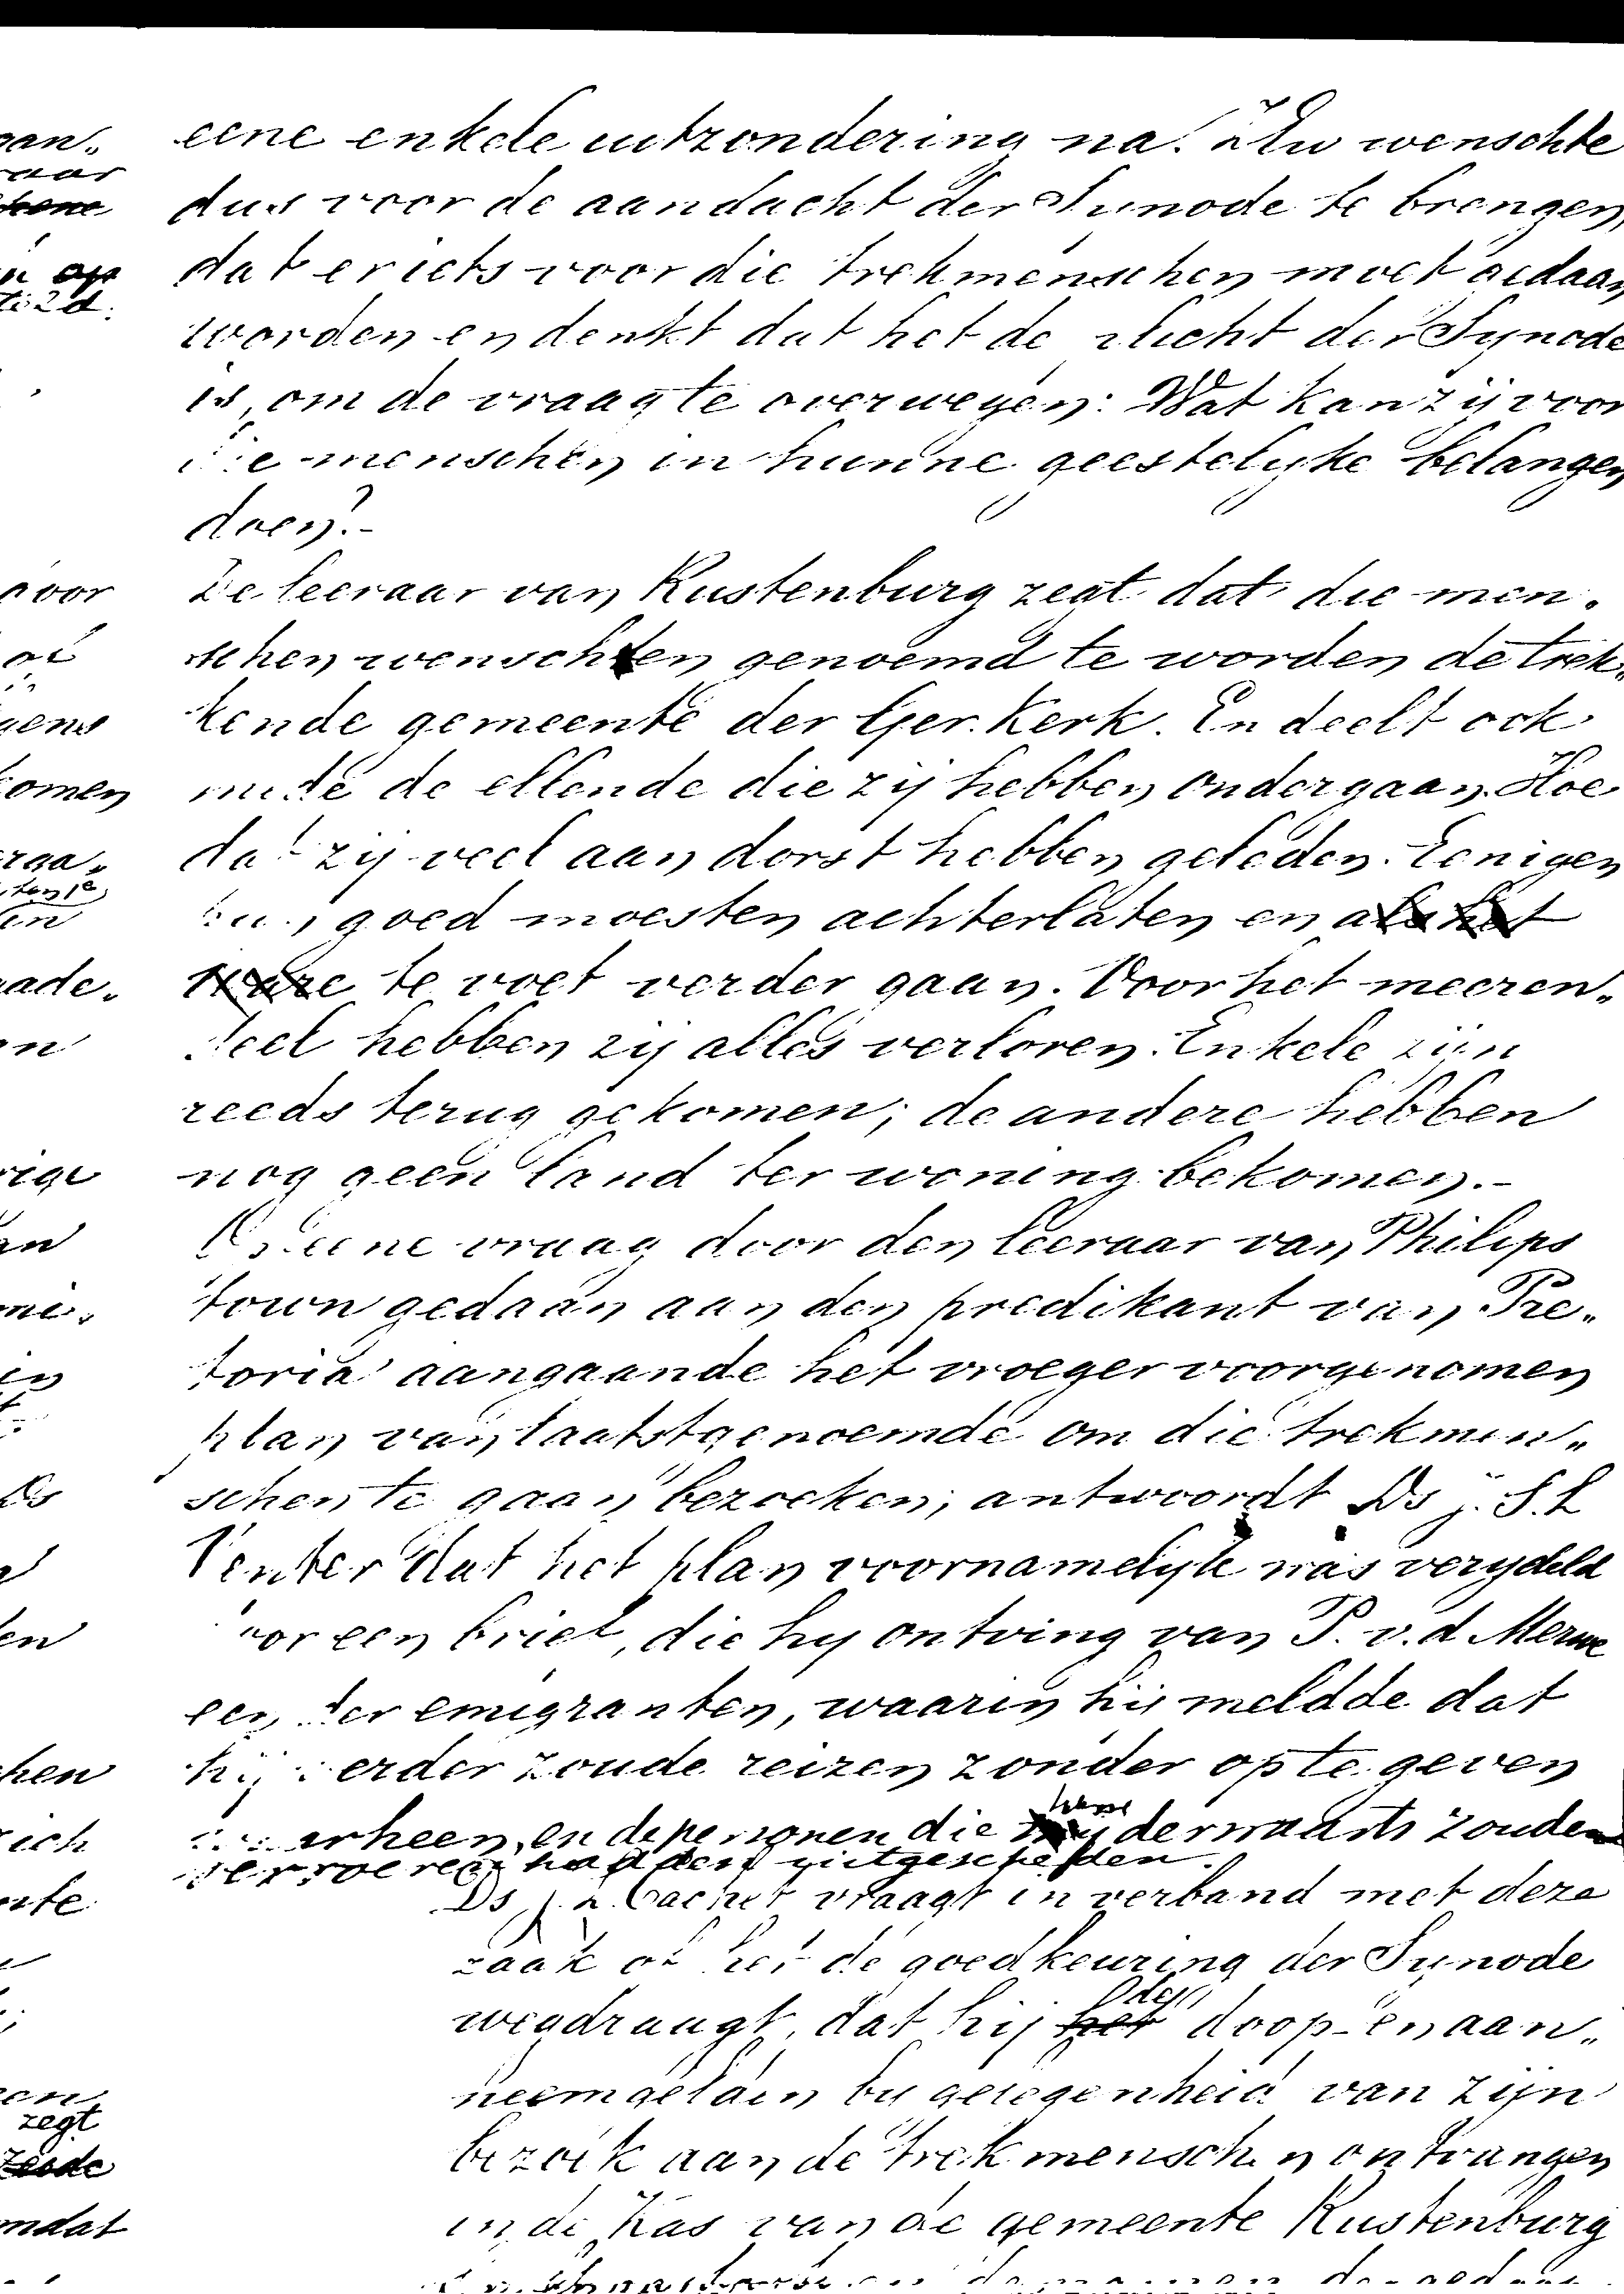 eene enkele uitzondering na. ZEw wenschte
dus voor de aandacht der Synode te brengen,
dat er iets voor die trekmenschen moet gedaan
worden en denkt dat het de plicht der Synode
is, om de vraag te overwegen: Wat kan zij voor
die menschen in hunne geestelijke belangen
doen?-
De leeraar van Rustenburg zegt dat die men„
schen wenschten genoemd te worden de trek„
kende gemeente der Ger. Kerk. En deelt ook
mede de ellende die zij hebben ondergaan. Hoe
dat zij veel aan dorst hebben geleden. Eenigen
hun goed moesten achterlaten en als het
ware te voet verder gaan. Voor het meeren„
deel hebben zij alles verloren. Enkele zijn
reeds terug gekomen; de andere hebben
nog geen land ter woning bekomen.-
Op eene vraag door den leeraar van Philips
town gedaan aan den predikant van Pre„
toria aangaande het vroeger voorgenomen
plan van laatstgenoemde om die trekmen„
schen te gaan bezoeken, antwoordt Ds J. S. L
Venter dat het plan voornamelijk was verydeld
door een brief, die hij ontving van P. v. d Merwe
een der emigranten, waarin hij meldde dat
hij verder zoude reizen zonder op te geven
waarheen, en de personen die hem derwaarts zouden
vervoeren hadden uitgescheiden.
Ds Cachet vraagt in verband met deze
zaak of het de goedkeuring der Synode
wegdraagt, dat hij het den doop- en aan„
neemgelden bij gelegenheid van zijn
bezoek aan de trekmenschen ontvangen
in de Kas van de gemeente Rustenburg